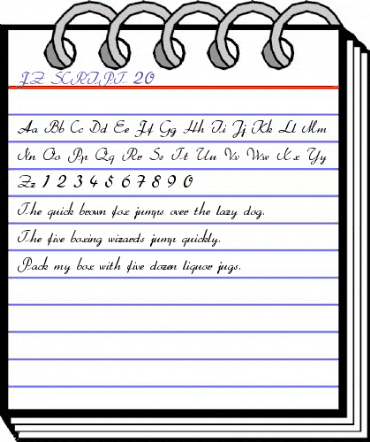 FZ SCRIPT 20
Aa Bb Cc Dd Ee Ff Gg Hh Ii Jj Kk Ll Mm
Nn Oo Pp Qq Rr Ss Tt Uu Vv Ww Xx Yy
Zz 1 2 3 4 5 6 7 8 9 0
The quick brown fox jumps over the lazy dog.
The five boxing wizards jump quickly.
Pack my box with five dozen liquor jugs.